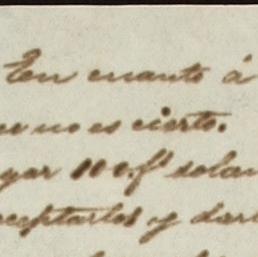 En cuanto á
ue no es cierto.
gar 100 f' solam
ceptarlos y dar